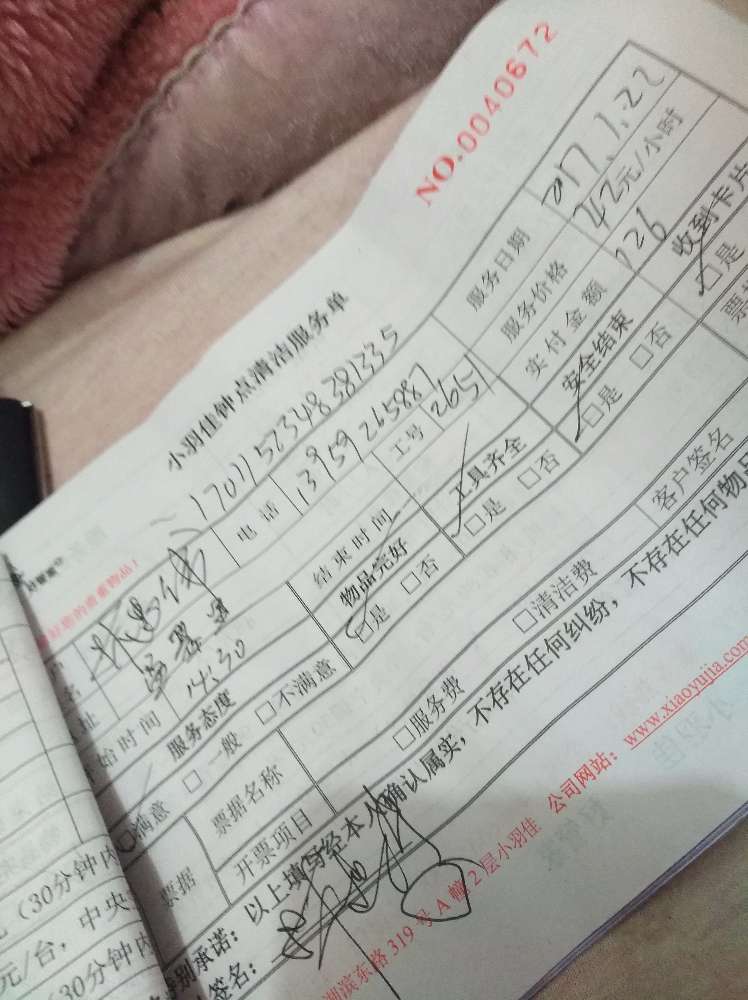 NO.0040672
小羽佳钟点清洁服务单
保管好您的贵重物品!
1701152348381335 服务日期 017.1.22
电话 13959265887 服务价格 42元/小时
地址 工号 2651 实付金额 126
开始时间 14:30 结束时间 工具齐全 安全结束 收到卡片
服务态度 物品完好 □是 □否 □是 □否 □是
□满意 □一般 □不满意 □是 □否
票据 票据名称 □服务费 □清洁费 客户签名
开票项目
特别承诺:以上填写经本人确认属实,不存在任何纠纷,不存在任何物品
签名:
湖滨东路319号A幢2层小羽佳 公司网站:www.xiaoyujia.com
(30分钟内
元/台,中央
(30分钟内